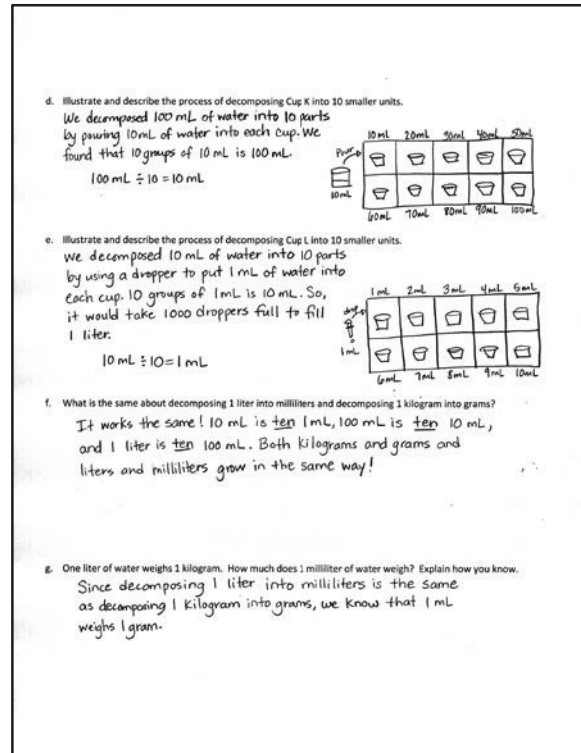 d. Illustrate and describe the process of decomposing Cup K into 10 smaller units.
We decomposed 100 mL of water into 10 parts
by pouring 10mL of water into each cup. We
found that 10 groups of 10 mL is 100 mL.
100 mL ÷ 10 = 10 mL
10ml 20ml 30ml 40ml 50ml
Pour
10mL
60mL 70mL 80mL 90mL 100mL
e. Illustrate and describe the process of decomposing Cup L into 10 smaller units.
We decomposed 10 mL of water into 10 parts
by using a dropper to put 1 mL of water into
each cup. 10 groups of 1mL is 10 mL. So,
it would take 1000 droppers full to fill
1 liter.
10 mL ÷ 10 = 1 mL
1mL 2mL 3mL 4mL 5mL
1mL
6mL 7mL 8mL 9mL 10mL
f. What is the same about decomposing 1 liter into milliliters and decomposing 1 kilogram into grams?
It works the same! 10 mL is ten 1mL, 100 mL is ten 10 mL,
and 1 liter is ten 100 mL. Both kilograms and grams and
liters and milliliters grow in the same way!
g. One liter of water weighs 1 kilogram. How much does 1 milliliter of water weigh? Explain how you know.
Since decomposing 1 liter into milliliters is the same
as decomposing 1 kilogram into grams, we know that 1 mL
weighs 1 gram.